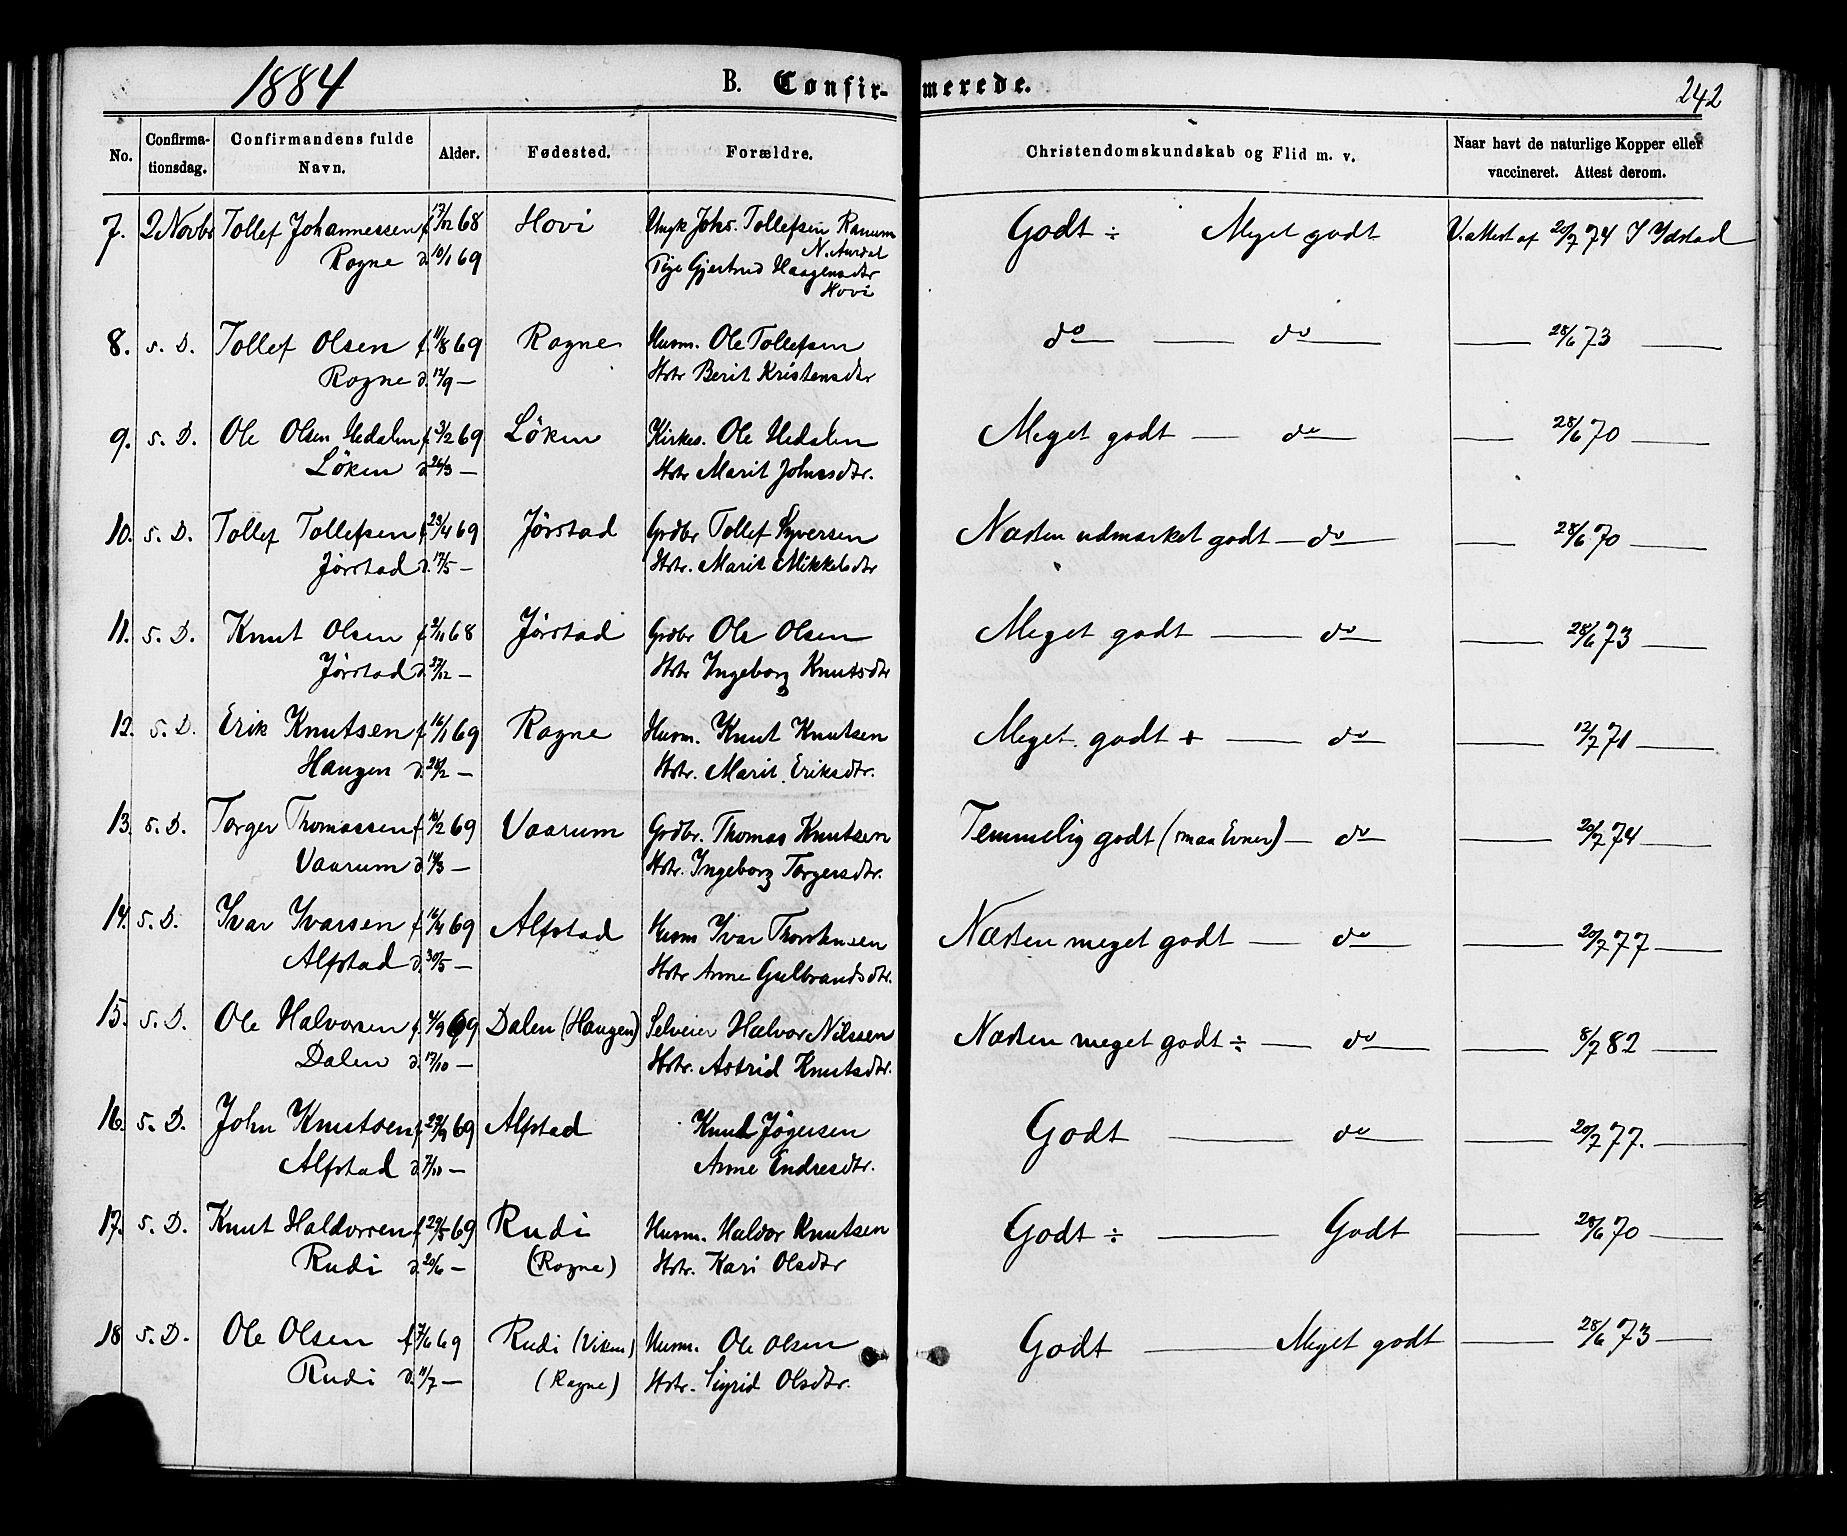 1884 B. Confirmerede. 242
No. Confirmationsdag. Confirmandens fulde Navn. Alder. Fødested. Forældre. Christendomskundskab og Flid m. v. Naar havt de naturlige Kopper eller vaccineret. Attest derom.
7. 2 Novbr Tollef Johannessen f. 17/12 68 Hovi Ungk Johs. Tollefsen Ranum Godt ÷ Meget godt V. attest af 20/7 74 I Ydstad
N. Aurdal
Rogne d. 10/1 69 Pige Gjertrud Haagensdtr
Hovi
8. s. D. Tollef Olsen f. 11/8 69 Rogne Husm. Ole Tollefsen do — do — 28/6 73 —
Rogne d. 12/9 — Hstr Berit Kristensdtr
9. s. D. Ole Olsen Hedalen f. 3/2 69 Löken Kirkes. Ole Hedalen Meget godt — do — 28/6 70 —
Löken d. 26/3 — Hstr Marit Johnsdtr.
10. s. D. Tollef Tollefsen f. 23/4 69 Jørstad Grdbr Tollef Syversen Næsten udmærket godt — do — 28/6 70 —
Jørstad d. 17/5 — Hstr. Marit Mikkelsdtr
11. s. D. Knut Olsen f. 2/11 68 Jørstad Grdbr Ole Olsen Meget godt — do — 28/6 73 —
Jørstad d. 27/12 — Hstr Ingeborg Knutsdtr
12. s. D. Erik Knutsen f. 16/1 69 Rogne Husm. Knut Knutsen Meget godt + — do — 12/7 71 —
Haugen d. 28/2 — Hstr. Marit Eriksdtr.
13. s. D. Torger Thomassen f. 10/2 69 Vaarum Grdbr. Thomas Knutsen Temmelig godt (smaa Evner) — do — 20/7 74 —
Vaarum d. 14/3 — Hstr. Ingeborg Torgersdtr.
14. s. D. Ivar Ivarsen f. 16/4 69 Alfstad Husm Ivar Thorstensen Næsten meget godt — do — 20/7 77 —
Alfstad d. 30/5 — Hstr Anne Gulbrandsdtr.
15. s. D. Ole Halvorsen f. 4/9 69 Dalen (Haugen) Selveier Halvor Nilssen Næsten meget godt ÷ — do — 8/7 82 —
Dalen d. 17/10 — Hstr. Astrid Knutsdtr.
16. s. D. John Knutsen f. 27/9 69 Alfstad Knut Jögersen Godt — do — 20/7 77. —
Alfstad d. 7/10 — Anne Endresdtr.
17. s. D. Knut Haldorsen f. 29/5 69 Rudi Husm. Haldor Knutsen Godt ÷ — Godt — 28/6 70 —
Rudi d. 20/6 — (Rogne) Hstr. Kari Olsdtr
18 s. D. Ole Olsen f. 7/6 69 Rudi (Viken) Husm. Ole Olsen Godt — Meget godt — 28/6 73 —
Rudi d. 11/7 — (Rogne) Hstr. Sigrid Olsdtr.